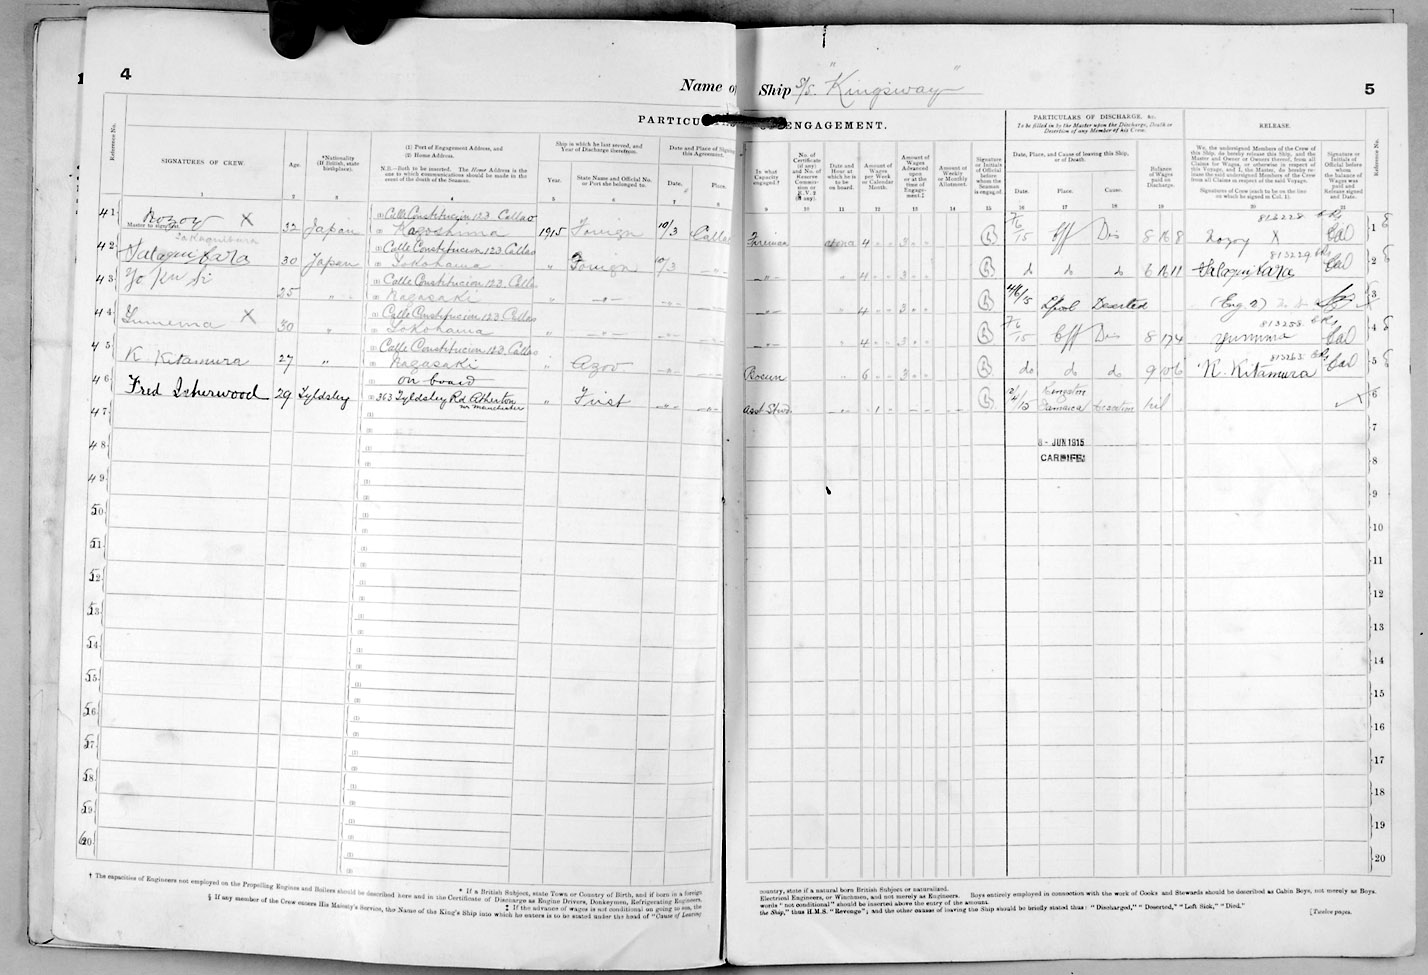 4
Name of Ship S/S. "Kingsway"
5
PARTICULARS OF ENGAGEMENT.
PARTICULARS OF DISCHARGE, &c.
To be filled in by the Master upon the Discharge, Death or Desertion of any Member of his Crew.
RELEASE.
Reference No.
SIGNATURES OF CREW.
Age.
*Nationality (If British, state birthplace).
(1) Port of Engagement Address, and
(2) Home Address.
N.B.—Both to be inserted. The Home Address is the one to which communications should be made in the event of the death of the Seaman.
Ship in which he last served, and Year of Discharge therefrom.
Year.
State Name and Official No. or Port she belonged to.
Date and Place of Signing this Agreement.
Date.
Place.
In what Capacity engaged.†
No. of Certificate (if any) and No. of Reserve Commission or R.V.2 (if any).
Date and Hour at which he is to be on board.
Amount of Wages per Week or Calendar Month.
Amount of Wages Advanced upon or at the time of Engagement.‡
Amount of Weekly or Monthly Allotment.
Signature or Initials of Officer before whom the Seaman is engaged.
Date, Place, and Cause of leaving this Ship, or of Death.
Date.
Place.
Cause.
Balance of Wages paid on Discharge.
We, the undersigned Members of the Crew of this Ship, do hereby release this Ship, and the Master and Owner or Owners thereof, from all Claims for Wages, or otherwise in respect of this Voyage, and I, the Master, do hereby release the said undersigned Members of the Crew from all Claims in respect of the said Voyage.
Signatures of Crew (each to be on the line on which he signed in Col. 1).
Signature or Initials of Official before whom the balance of Wages was paid and Release signed and Date.
Reference No.
1 3 4 5 6 7 8 9 10 11 12 13 14 15 16 17 18 19 20 21
41 Nozoy X 32 Japan (1) Calle Constitucion 123 Callao
Master to sign first.
(2) Kagoshima 1915 Foreign 10/3 Callao Fireman 4 3 7/6/15 Cff Dis 8 16 8 Nozoy X 813228 1
42 30 Japan (1) Calle Constitucion 123 Callao
(2) Yokohama " Foreign 10/3 —"— —"— 4 3 do do do 6 16 11 813229 2
43 Yo Ken Si 25 " (1) Calle Constitucion 123 Callao
(2) Nagasaki " —"— —"— —"— 4 3 4/6/15 Lpool Deserted (Eng 2) 3
44 Yumema X 30 " (1) Calle Constitucion 123 Callao
(2) Yokohama " —"— —"— —"— 4 3 7/6/15 Cff Dis 8 17 4 813258 4
45 K. Kitamura 27 " (1) Calle Constitucion 123 Callao
(2) Nagasaki " Azov —"— —"— Bosun 6 3 do do do 9 10 6 K. Kitamura 5
46 Fred Isherwood 29 Tyldsley (1) on board
(2) 363 Tyldsley Rd Atherton nr Manchester " First —"— —"— Asst Stwd. 1 Kingston Jamaica Desertion Nil 6
47 7
8 - JUN 1915
CARDIFF.
48 8
49 9
50 10
51 11
52 12
53 13
54 14
55 15
56 16
57 17
58 18
59 19
60 20
* If a British Subject, state Town or Country of Birth, and if born in a foreign country, state if a natural born British Subject or naturalized.
† The capacities of Engineers not employed on the Propelling Engines and Boilers should be described here and in the Certificate of Discharge as Engine Drivers, Donkeymen, Refrigerating Engineers, Electrical Engineers, or Winchmen, and not merely as Engineers. Boys entirely employed in connection with the work of Cooks and Stewards should be described as Cabin Boys, not merely as Boys.
‡ If the advances of wages is not conditional on going to sea, the words "not conditional" should be inserted above the entry of the amount.
§ If any member of the Crew enters His Majesty's Service, the Name of the King's Ship into which he enters is to be stated under the head of "Cause of Leaving the Ship," thus H.M.S. "Revenge"; and the other causes of leaving the Ship should be briefly stated thus: "Discharged," "Deserted," "Left Sick," "Died."
[Twelve pages.